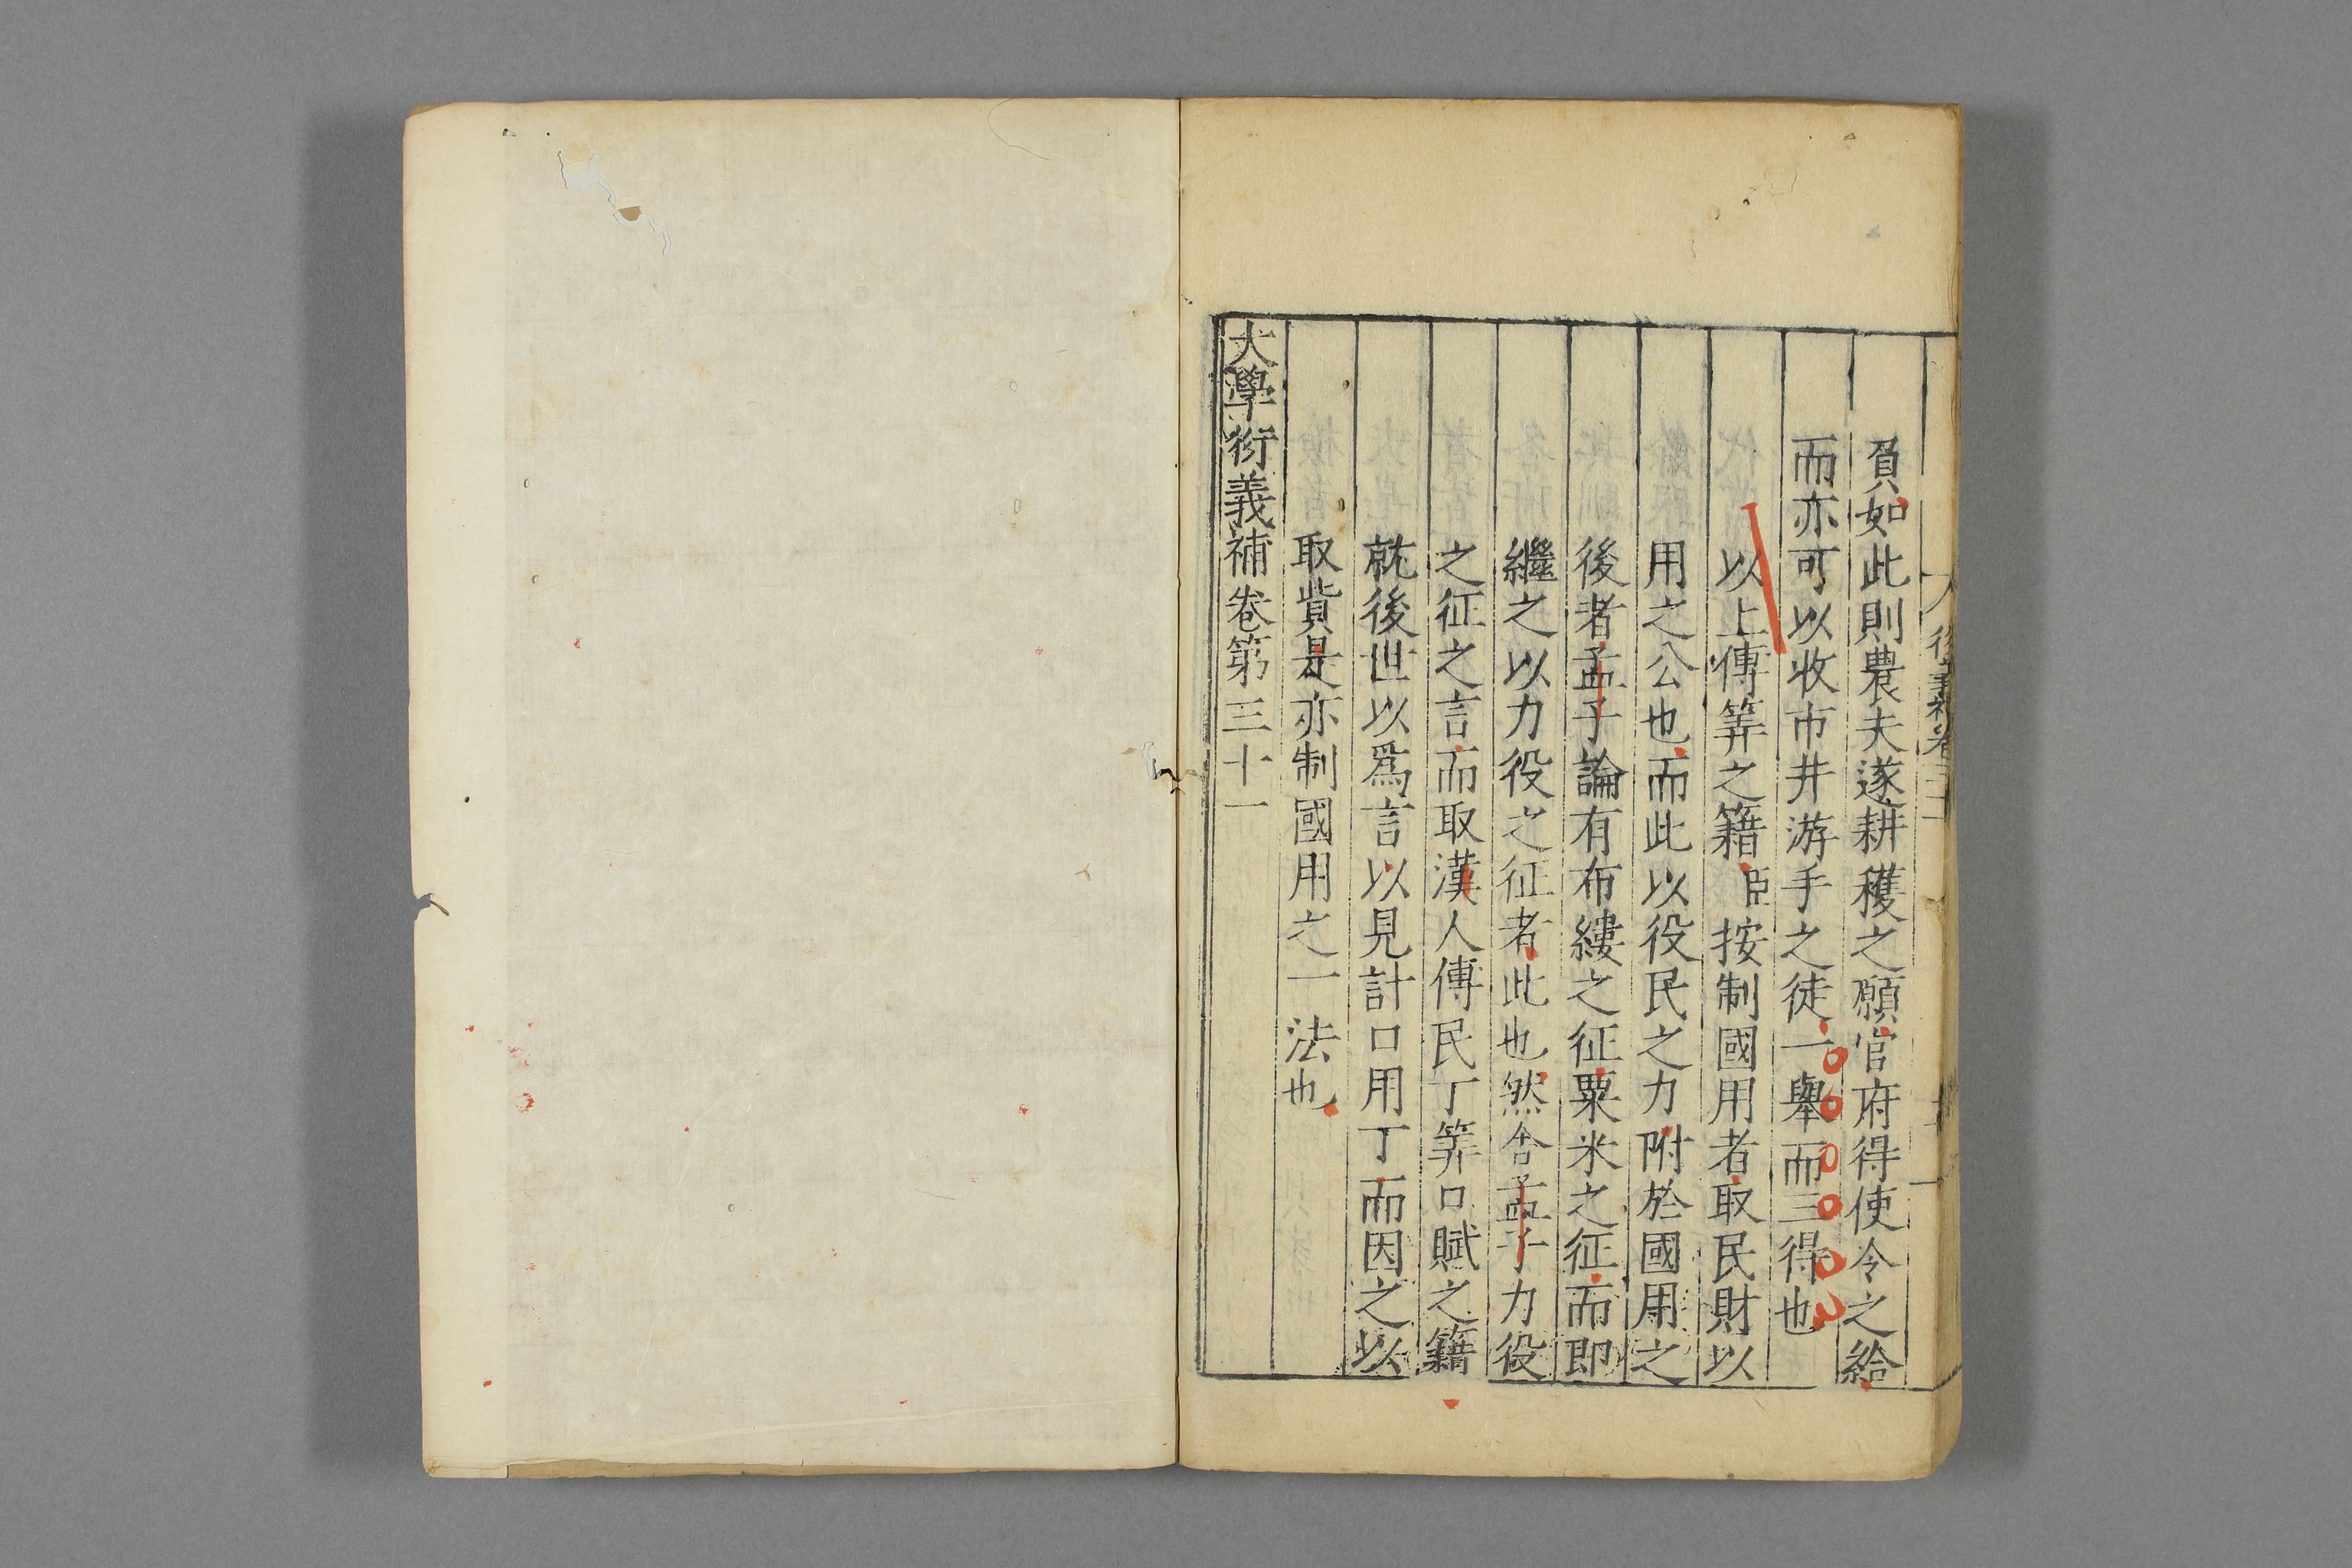 負如此則農夫遂耕穫之願官府得使令之給
而亦可以收市井游手之徒一舉而三得也
以上傅筭之籍臣按制國用者取民財以
用之公也而此以役民之力附於國用之
後者孟子論有布縷之征粟米之征而即
繼之以力役之征者此也然舍孟子力役
之征之言而取漢人傅民丁筭口賦之籍
就後世以爲言以見計口用丁而因之以
取貲是亦制國用之一法也
大學衍義補卷第三十一